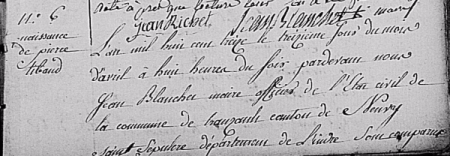 n.º 6
naissance
de pierre
Jean Richet Jean Blanchet maire
L'an mil huit cen treize le treizième jour du mois
d'avril à huit heures du soir pardevant nous
Jean Blanchet maire officier de l'Etat civil de
la commune de tranzault canton de Neuvy
Saint Sepulcre département de l'indre sont comparus